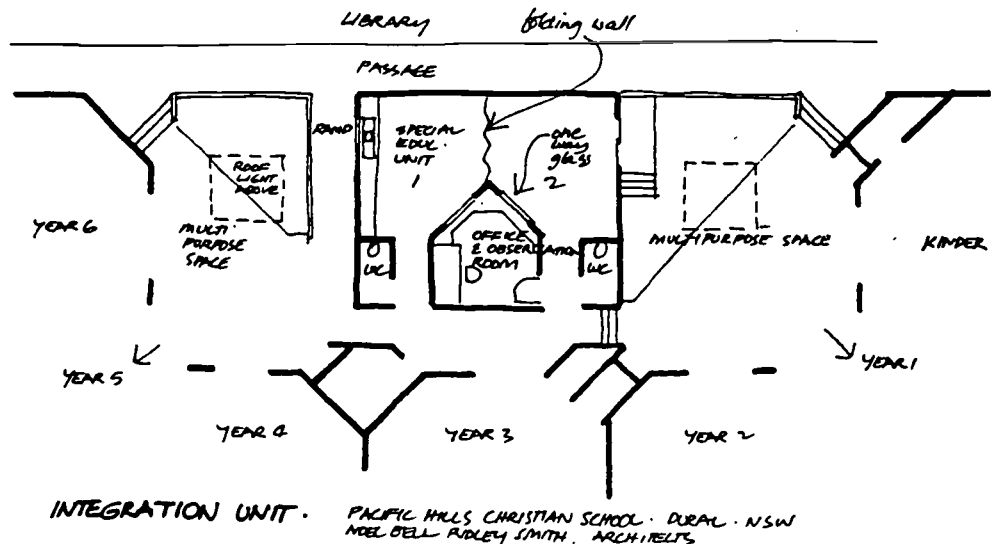 LIBRARY
folding wall
PASSAGE
RAMP
SPECIAL
EDUC.
UNIT
1
one
way
glass
2
ROOF
LIGHT
ABOVE
YEAR 6
MULTI
PURPOSE
SPACE
OFFICE
& OBSERVATION
ROOM
WC
WC
MULTIPURPOSE SPACE
KINDER
YEAR 5
YEAR 1
YEAR 4
YEAR 3
YEAR 2
INTEGRATION UNIT.
PACIFIC HILLS CHRISTIAN SCHOOL. DURAL. NSW
NOEL BELL RIDLEY SMITH, ARCHITECTS